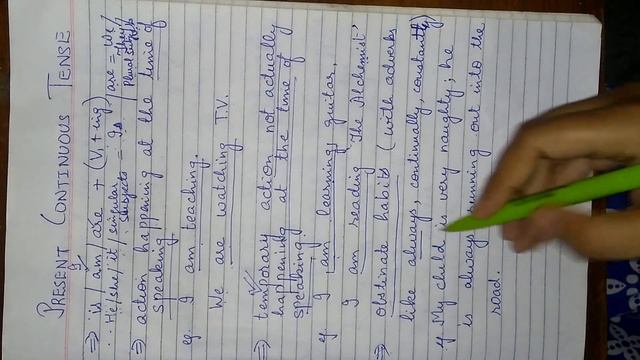 PRESENT CONTINUOUS TENSE
⇒ is/am/are + (V₁+ing)
He/she/it/singular subjects = is / are = We/They/Plural subjects
⇒ action happening at the time of
speaking
eg. I am teaching.
We are watching T.V.
⇒ temporary action not actually
happening at the time of
speaking
eg I am learning guitar.
I am reading 'The Alchemist'
⇒ obstinate habits (with adverbs
like always, continually, constantly)
My child is very naughty; he
is always running out into the
road.